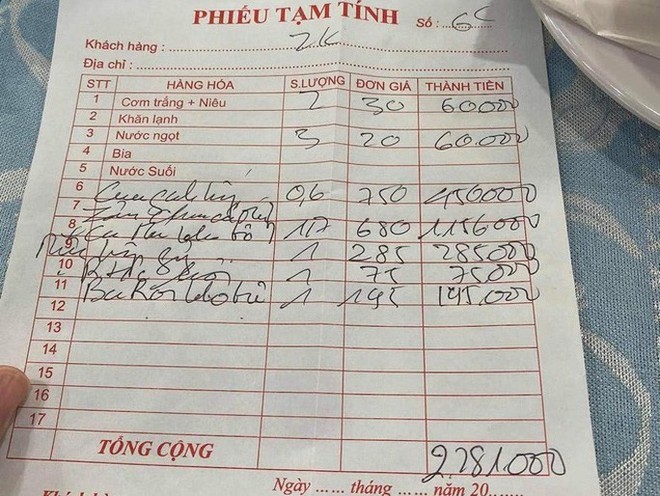 PHIẾU TẠM TÍNH
Số : 6C
Khách hàng : 2K
Địa chỉ :
STT HÀNG HÓA S.LƯỢNG ĐƠN GIÁ THÀNH TIỀN
1 Cơm trắng + Niêu 2 30 60.000
2 Khăn lạnh
3 Nước ngọt 3 20 60.000
4 Bia
5 Nước Suối
6 0,6 750 450000
7
8 1,7 680 1156000
9 1 285 285000
10 1 75 75000
11 Ba Rọi kho 1 195 195.000
12
13
14
15
16
17
TỔNG CỘNG 2281.000
Ngày ...... tháng ...... năm 20